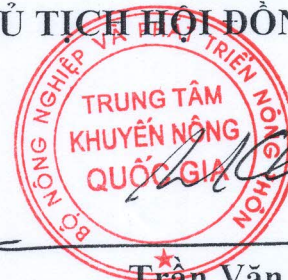 Ủ TỊCH HỘI ĐỒN
BỘ NÔNG NGHIỆP VÀ PHÁT TRIỂN NÔNG THÔN
TRUNG TÂM
KHUYẾN NÔNG
QUỐC GIA
Trần Văn